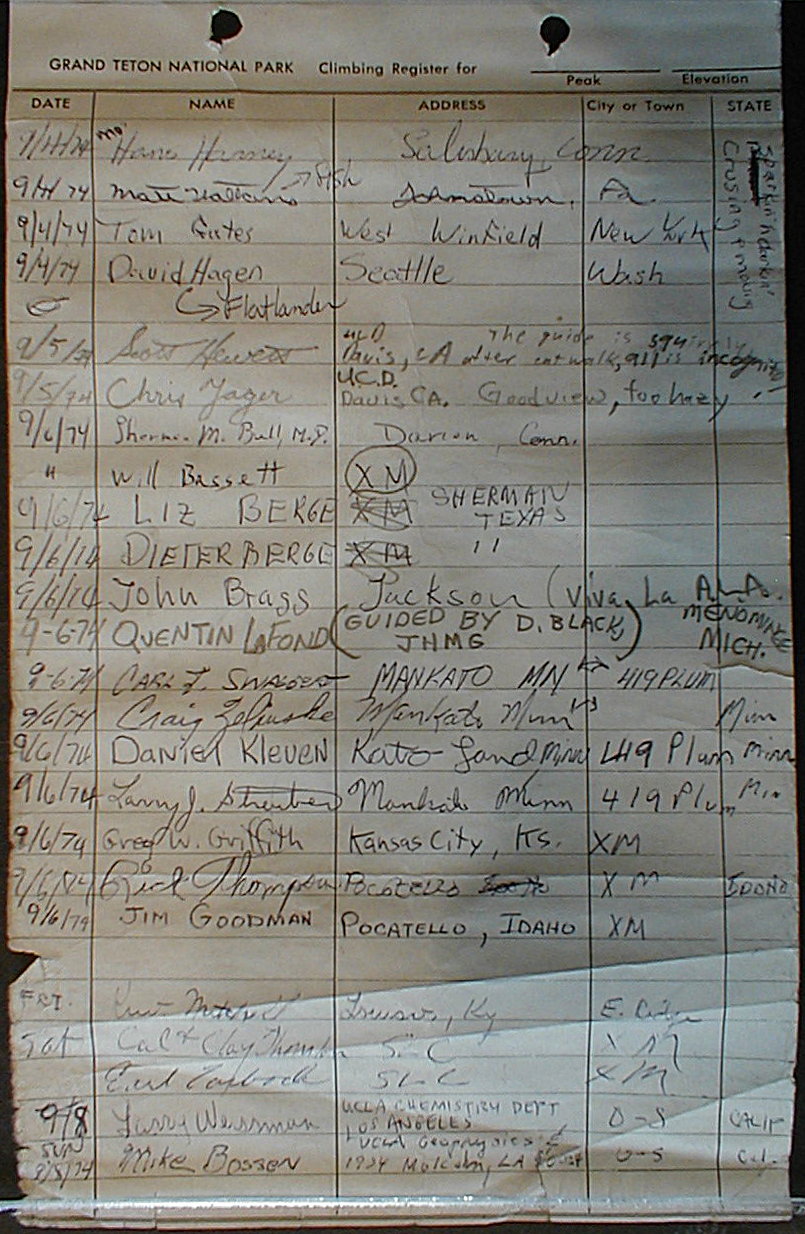 GRAND TETON NATIONAL PARK Climbing Register for
Peak Elevation
DATE NAME ADDRESS City or Town STATE
Salisbury, Conn.
9/4/74 Matt Johnstown, Pa.
9/4/74 Tom Gates West Winfield New York
9/4/74 David Hagen Seattle Wash
Flatlander
9/5/74 Scott Hewett UCD Davis, CA The guide is after catwalk, all is incognito
9/5/74 Chris Yager U.C.D. Davis CA. Good view, too hazy
9/6/74 M. Bull, M.D. Darien, Conn.
" Will Bassett XM
9/6/74 LIZ BERGE XM SHERMAN TEXAS
9/6/74 DIETER BERGE XM 11
9/6/74 John Bragg Jackson (Viva La
9-6-74 QUENTIN LAFOND (GUIDED BY D. BLACK, JHMG) MENOMINEE MICH.
9-6-74 CARL MANKATO MN 419 PLUM
9/6/74 Craig Mankato Minn Minn
9/6/74 Daniel Kleven Kato Land Minn 419 Plum Minn
9/6/74 Larry J. Mankato Minn 419 Plum Min
9/6/74 Greg W. Griffith Kansas City, Ks. XM
9/6/74 Rick Thompson Pocatello XM IDAHO
9/6/74 JIM GOODMAN POCATELLO, IDAHO XM
FRI. Mitchell Ky E.
Sat Cal & Clay S.L.C XM
Earl SLC XM
9/8 Larry Weissman UCLA CHEMISTRY DEPT LOS ANGELES O-S CALIF
SUN 9/8/74 Mike Bossen UCLA Geophysics 1934 Malcolm, LA O-S Cal.